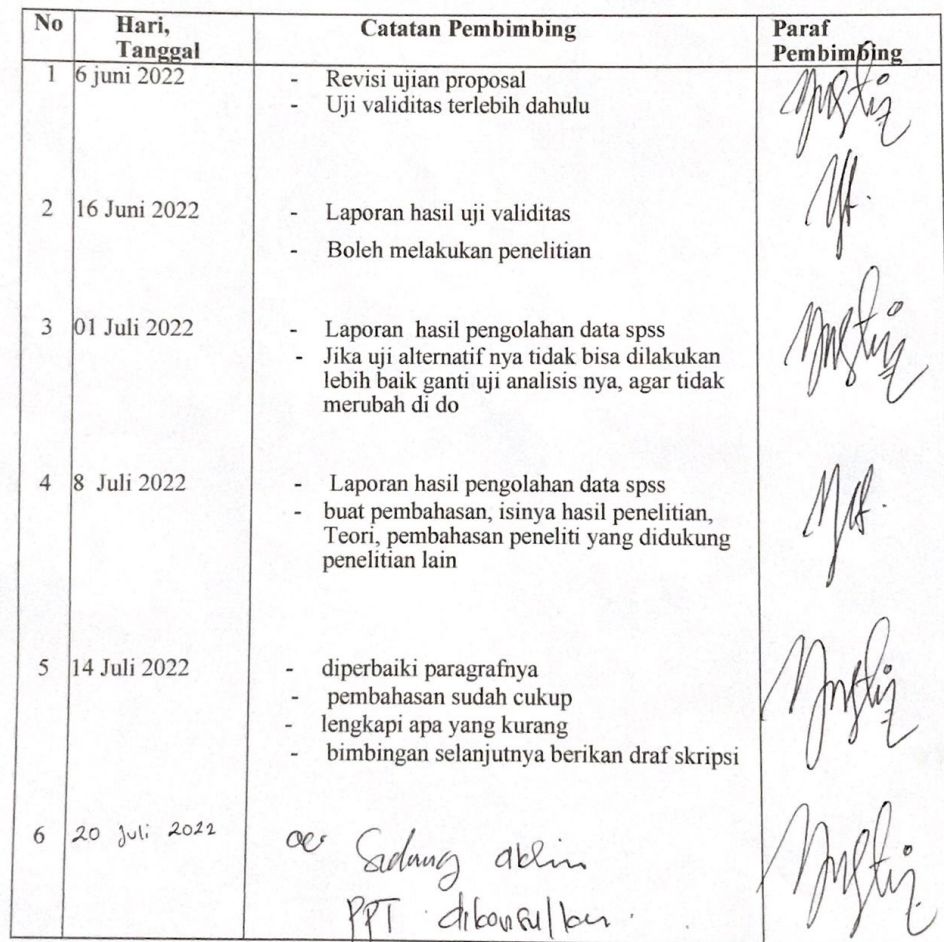 No Hari, Catatan Pembimbing Paraf
Tanggal Pembimbing
1 6 juni 2022 - Revisi ujian proposal
- Uji validitas terlebih dahulu
2 16 Juni 2022 - Laporan hasil uji validitas
- Boleh melakukan penelitian
3 01 Juli 2022 - Laporan hasil pengolahan data spss
- Jika uji alternatif nya tidak bisa dilakukan
lebih baik ganti uji analisis nya, agar tidak
merubah di do
4 8 Juli 2022 - Laporan hasil pengolahan data spss
- buat pembahasan, isinya hasil penelitian,
Teori, pembahasan peneliti yang didukung
penelitian lain
5 14 Juli 2022 - diperbaiki paragrafnya
- pembahasan sudah cukup
- lengkapi apa yang kurang
- bimbingan selanjutnya berikan draf skripsi
6 20 Juli 2022 Sidang akhir
PPT dikonsulkan.